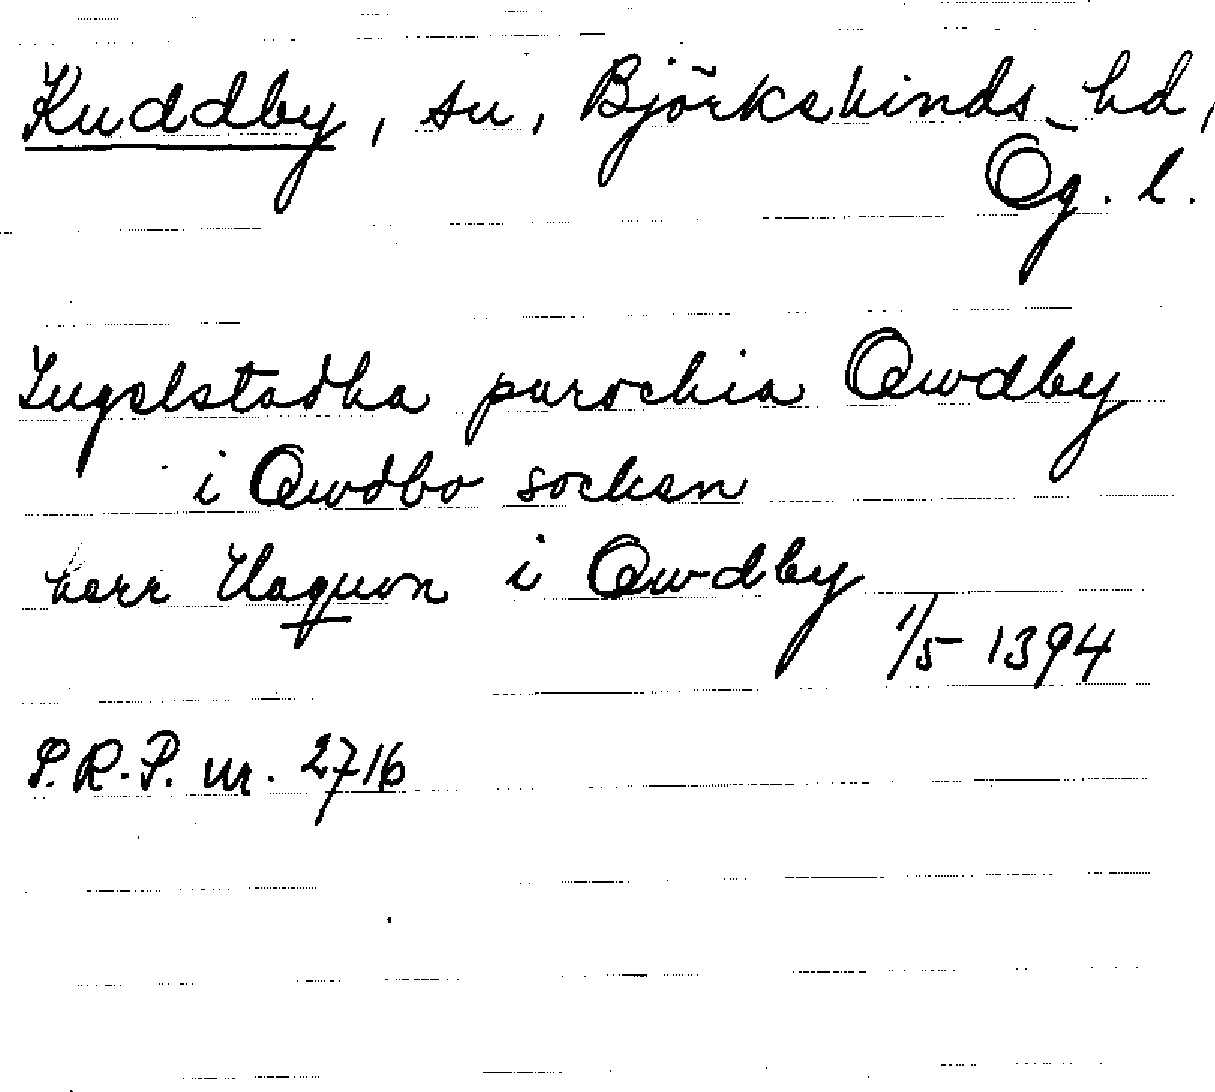 Kuddby, sn, Björkekinds hd,
Ög. l.
Ingelstadha parochia Qwdby
i Qwdbo socken
herr Haquon i Qwdby
1/5 1394
P.R.P. nr. 2716